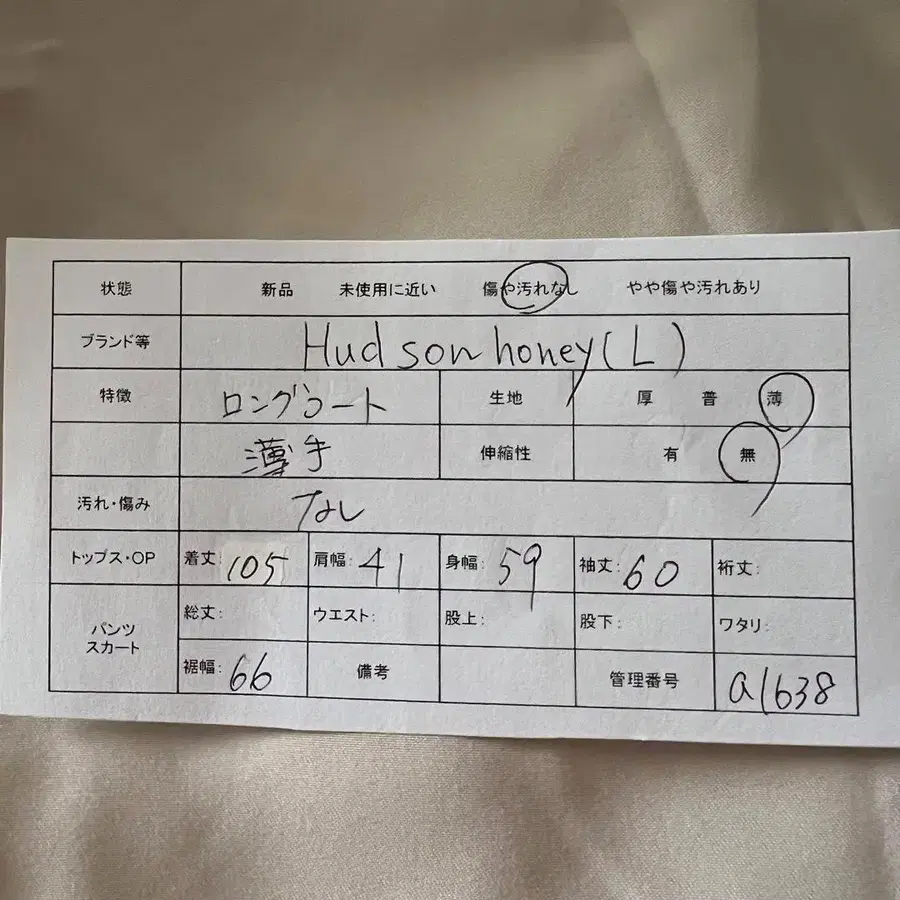 状態 新品 未使用に近い 傷や汚れなし やや傷や汚れあり
ブランド等 Hudson honey(L)
特徴 ロングコート 生地 厚 普 薄
薄手 伸縮性 有 無
汚れ・傷み なし
トップス・OP 着丈: 105 肩幅: 41 身幅: 59 袖丈: 60 裄丈:
パンツ スカート 総丈: ウエスト: 股上: 股下: ワタリ:
裾幅: 66 備考 管理番号 a1638